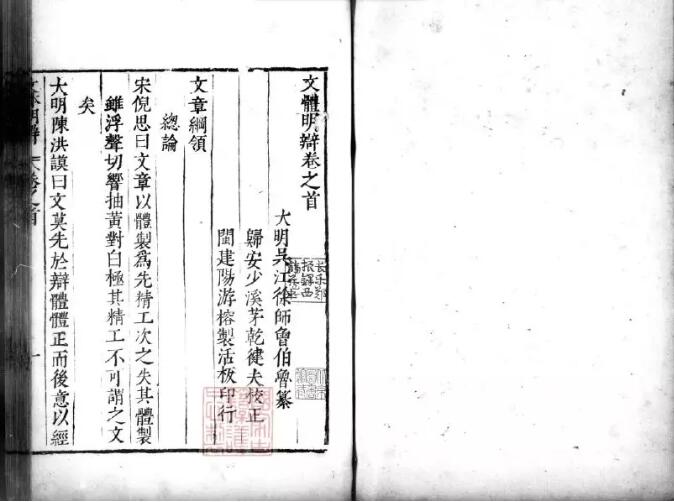 文體明辯卷之首
大明吴江徐師曾伯魯纂
歸安少溪茅乾健夫校正
閩建陽游榕製活板印行
文章綱領
總論
宋倪思曰文章以體製爲先精工次之失其體製
雖浮聲切響抽黃對白極其精工不可謂之文
矣
大明陳洪謨曰文莫先於辯體體正而後意以經
文体明辯 卷之首
一
長樂鄭
振鐸西
諦藏書